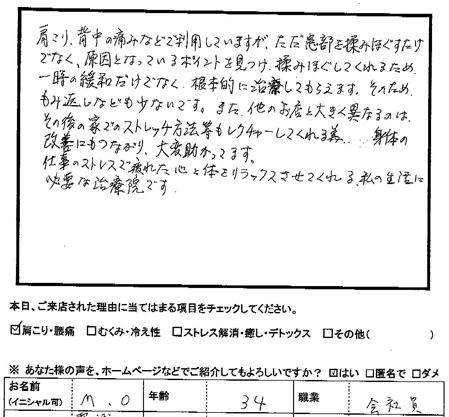 肩こり、背中の痛みなどで利用していますが、ただ患部を揉みほぐすだけ
でなく、原因となっているポイントを見つけ、揉みほぐしてくれるため
一時の緩和だけでなく、根本的に治療してもらえます。そのため、
もみ返しなども少ないです。また、他のお店と大きく異なるのは、
その後の家でのストレッチ方法等もレクチャーしてくれる為、、身体の
改善にもつながり、大変助かってます。
仕事のストレスで疲れた心と体をリラックスさせてくれる、私の生活に
必要な治療院です。
本日、ご来店された理由に当てはまる項目をチェックしてください。
☑肩こり・腰痛 □むくみ・冷え性 □ストレス解消・癒し・デトックス □その他( )
※ あなた様の声を、ホームページなどでご紹介してもよろしいですか？ ☑はい □匿名で □ダメ
お名前 (イニシャル可) M.O 年齢 34 職業 会社員